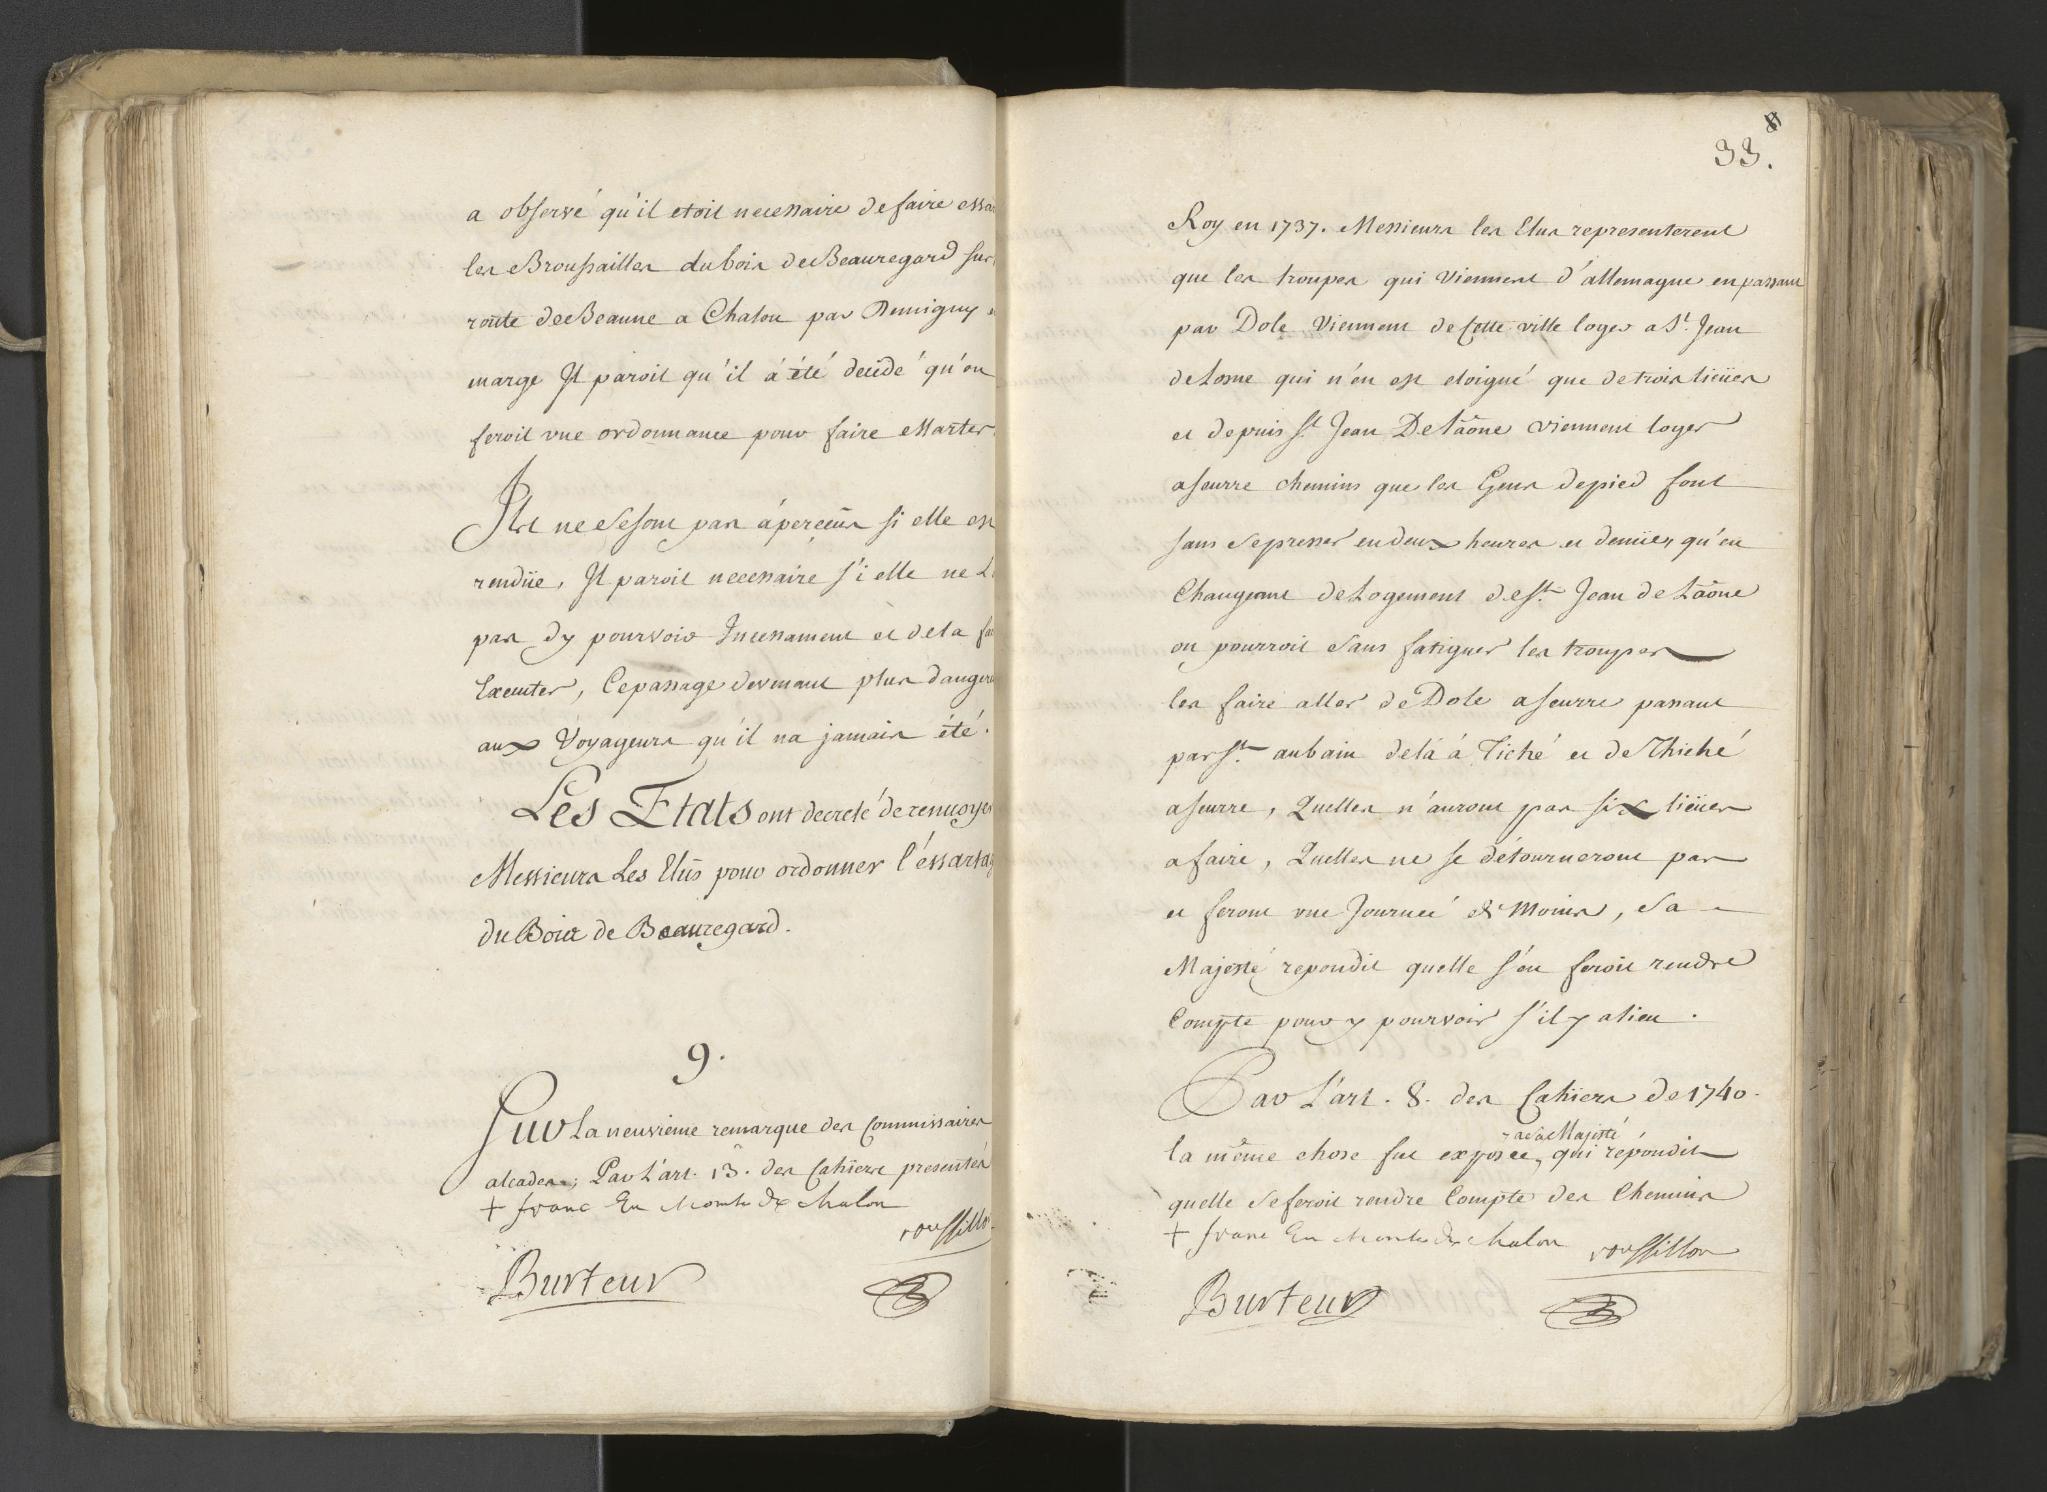 a observé qu'il etoit necessaire de faire essar
les Broussailles du bois de Beauregard sur
route de Beaune a Chalon par Demigny
marge Jl paroit qu'il á été decidé qu'on
seroit vne ordonnance pour faire essarter
Jls ne se sont pas áperçeûs si elle est
rendüe, Jl paroit necessaire s'i elle ne L
pas dy pourvoir Jncessament et de la fai
Executer, Ce passage devenant plus dangere
aux Voyageurs qu'il na jamais été.
Les Etats ont decreté de renuoyer
Messieurs Les Elûs pour ordonner l'éssartag
du Bois de Beauregard.
9.
Sur La neuvieme remarque des Commissaires
alcades; Par L'art. 13. des Cahiers presentés
+ franc Ev Comte de chalon
roussillo
Burteur
8
33.
Roy en 1737. Messieurs les Elus representerent
que les troupes qui Viennent d'allemagne en passant
par Dole Viennent de Cette ville loger a St. Jean
de Losne qui n'en est eloigné que de trois lieües
et depuis St Jean De Laône viennent loger
a seurre chemins que les Gens de pied font
sans se presser en deux heures et demiies qu'en
Changeant de Logement de St. Jean de Laône
on pourroit sans fatiguer les troupes
les faire aller de Dole a seurre passant
par St. aubain delá á Tiché et de Thiché
a seurre, Quelles n'auront pas six lieües
a faire, Quelles ne se détourneront pas
et feront vne Journeé de Moins, Sa
Majesté repondit quelle s'en feroit rendre
Compte pour y pourvoir s'il y a lieu.
Par L'art. 8. des Cahiers de 1740.
a sa Majesté
la même chose fut exposée, qui répondit
quelle se feroit rendre Compte des Chemins
+ franc Ev Comte de chalon roussillon
Burteur